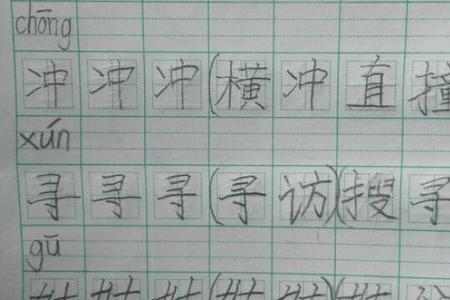 chōng
冲 冲 冲 (横 冲 直 撞
xún
寻 寻 寻 (寻 访) (搜 寻
gū